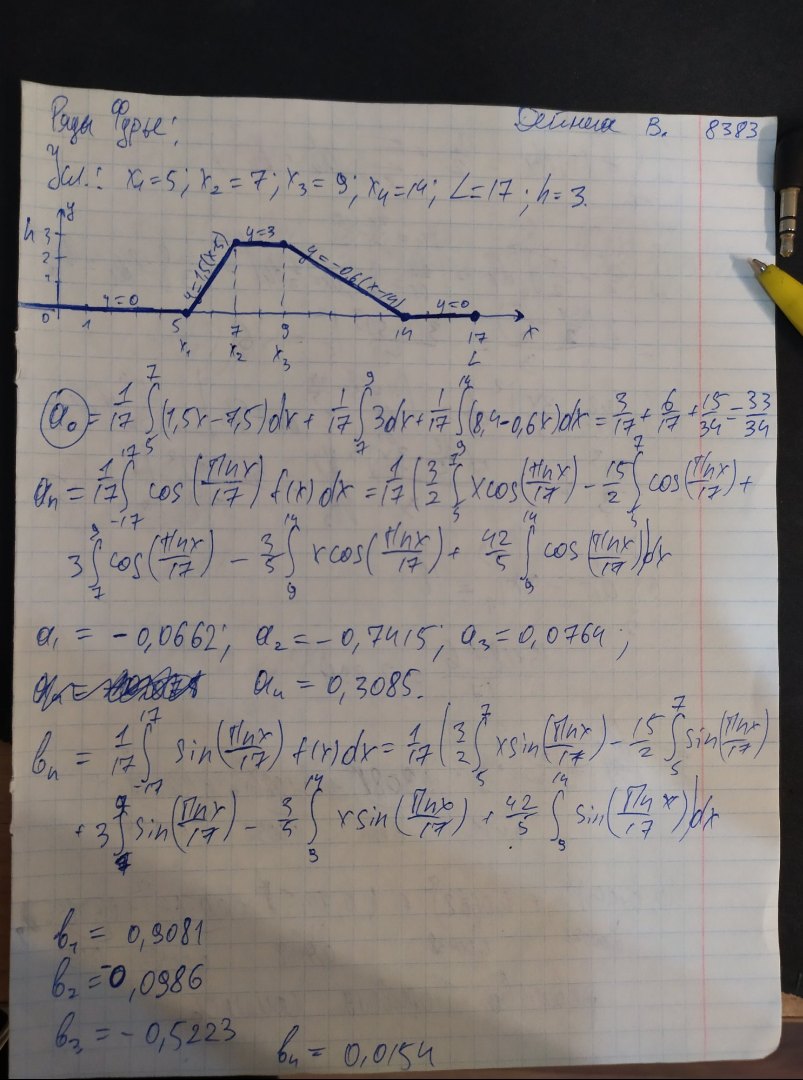 Ряды Фурье:
Дейнега В. 8383
Усл.: x₁=5; x₂=7; x₃=9; x₄=14; L=17; h=3.
y
h 3
2
1
y=0
y=1,5(x-5)
y=3
y=-0,6(x-14)
y=0
0 1 5 7 9 14 17 x
x₁ x₂ x₃ L
a₀ = 1/17 ∫₅⁷ (1,5x-7,5)dx + 1/17 ∫₇⁹ 3dx + 1/17 ∫₉¹⁴ (8,4-0,6x)dx = 3/17 + 6/17 + 15/34 = 33/34
aₙ = 1/17 ∫₋₁₇¹⁷ cos(πnx/17) f(x)dx = 1/17 (3/2 ∫₅⁷ x cos(πnx/17) - 15/2 ∫₅⁷ cos(πnx/17) +
3 ∫₇⁹ cos(πnx/17) - 3/5 ∫₉¹⁴ x cos(πnx/17) + 42/5 ∫₉¹⁴ cos(πnx/17))dx
a₁ = -0,0662; a₂ = -0,7415; a₃ = 0,0764;
a₄ = 0,3085.
bₙ = 1/17 ∫₋₁₇¹⁷ sin(πnx/17) f(x)dx = 1/17 (3/2 ∫₅⁷ x sin(πnx/17) - 15/2 ∫₅⁷ sin(πnx/17)
+ 3 ∫₇⁹ sin(πnx/17) - 3/5 ∫₉¹⁴ x sin(πnx/17) + 42/5 ∫₉¹⁴ sin(πnx/17))dx
b₁ = 0,9081
b₂ = -0,0986
b₃ = -0,5223
b₄ = 0,0154